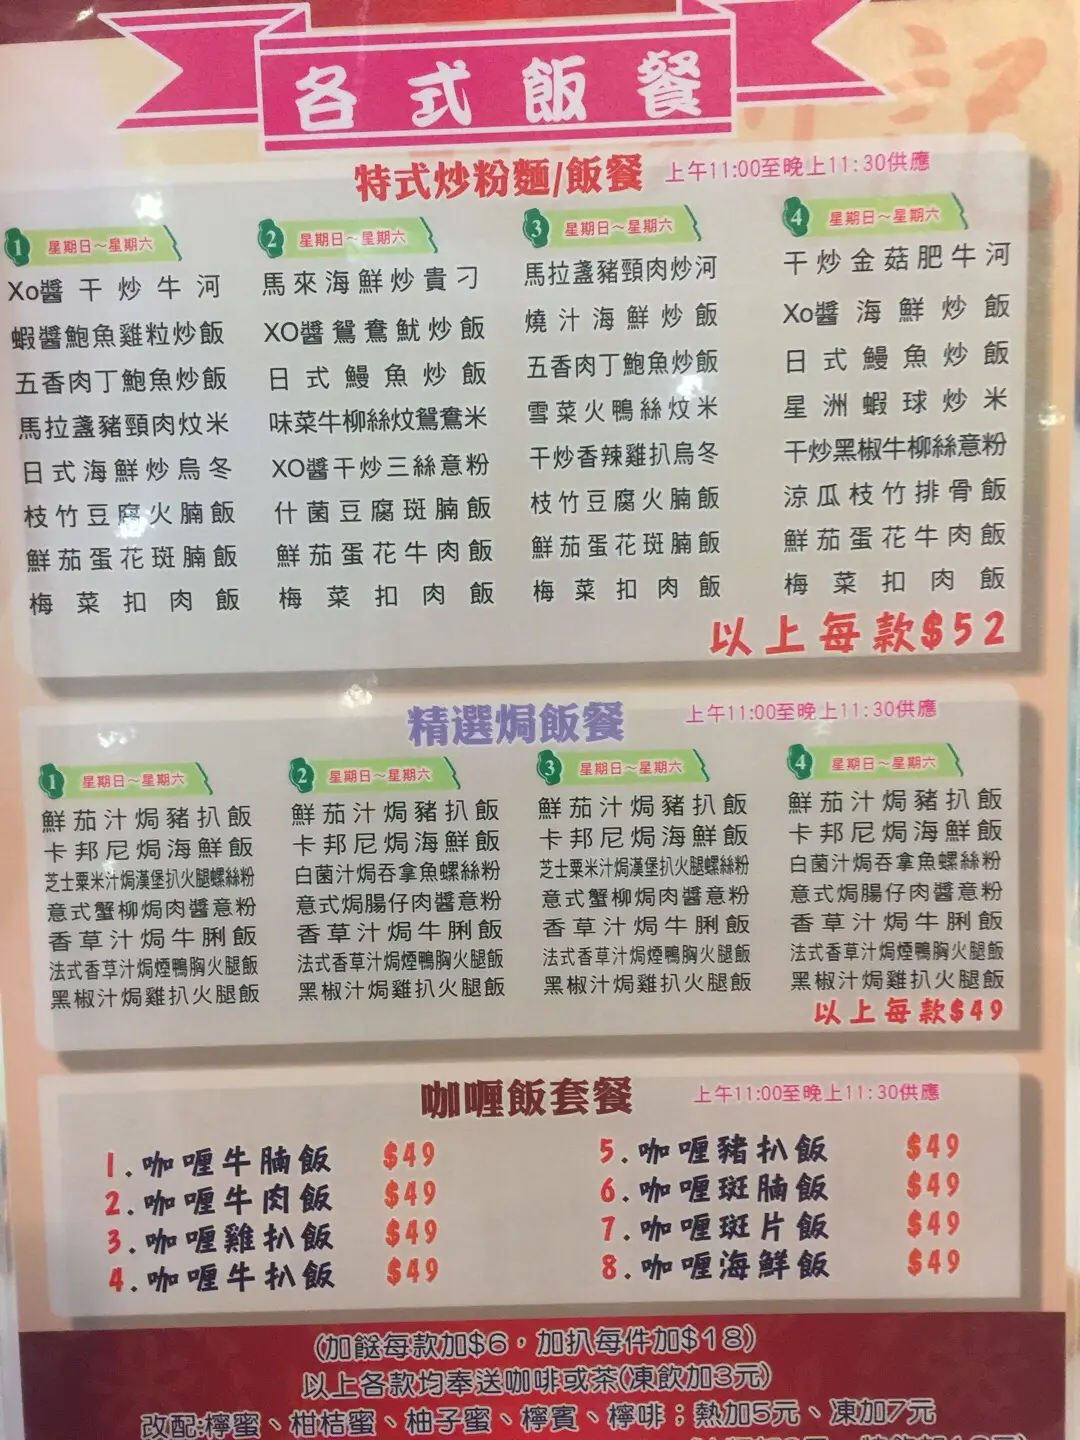 各式飯餐
特式炒粉麵/飯餐 上午11:00至晚上11:30供應
1 星期日~星期六
Xo醬干炒牛河
蝦醬鮑魚雞粒炒飯
五香肉丁鮑魚炒飯
馬拉盞豬頸肉炆米
日式海鮮炒烏冬
枝竹豆腐火腩飯
鮮茄蛋花斑腩飯
梅菜扣肉飯
2 星期日~星期六
馬來海鮮炒貴刁
XO醬鴛鴦魷炒飯
日式鰻魚炒飯
味菜牛柳絲炆鴛鴦米
XO醬干炒三絲意粉
什菌豆腐斑腩飯
鮮茄蛋花牛肉飯
梅菜扣肉飯
3 星期日~星期六
馬拉盞豬頸肉炒河
燒汁海鮮炒飯
五香肉丁鮑魚炒飯
雪菜火鴨絲炆米
干炒香辣雞扒烏冬
枝竹豆腐火腩飯
鮮茄蛋花斑腩飯
梅菜扣肉飯
4 星期日~星期六
干炒金菇肥牛河
Xo醬海鮮炒飯
日式鰻魚炒飯
星洲蝦球炒米
干炒黑椒牛柳絲意粉
涼瓜枝竹排骨飯
鮮茄蛋花牛肉飯
梅菜扣肉飯
以上每款$52
精選焗飯餐 上午11:00至晚上11:30供應
1 星期日~星期六
鮮茄汁焗豬扒飯
卡邦尼焗海鮮飯
芝士粟米汁焗漢堡扒火腿螺絲粉
意式蟹柳焗肉醬意粉
香草汁焗牛脷飯
法式香草汁焗煙鴨胸火腿飯
黑椒汁焗雞扒火腿飯
2 星期日~星期六
鮮茄汁焗豬扒飯
卡邦尼焗海鮮飯
白菌汁焗吞拿魚螺絲粉
意式焗腸仔肉醬意粉
香草汁焗牛脷飯
法式香草汁焗煙鴨胸火腿飯
黑椒汁焗雞扒火腿飯
3 星期日~星期六
鮮茄汁焗豬扒飯
卡邦尼焗海鮮飯
芝士粟米汁焗漢堡扒火腿螺絲粉
意式蟹柳焗肉醬意粉
香草汁焗牛脷飯
法式香草汁焗煙鴨胸火腿飯
黑椒汁焗雞扒火腿飯
4 星期日~星期六
鮮茄汁焗豬扒飯
卡邦尼焗海鮮飯
白菌汁焗吞拿魚螺絲粉
意式焗腸仔肉醬意粉
香草汁焗牛脷飯
法式香草汁焗煙鴨胸火腿飯
黑椒汁焗雞扒火腿飯
以上每款$49
咖喱飯套餐 上午11:00至晚上11:30供應
1.咖喱牛腩飯 $49
2.咖喱牛肉飯 $49
3.咖喱雞扒飯 $49
4.咖喱牛扒飯 $49
5.咖喱豬扒飯 $49
6.咖喱斑腩飯 $49
7.咖喱斑片飯 $49
8.咖喱海鮮飯 $49
(加餸每款加$6，加扒每件加$18)
以上各款均奉送咖啡或茶(凍飲加3元)
改配:檸蜜、柑桔蜜、柚子蜜、檸賓、檸啡；熱加5元、凍加7元